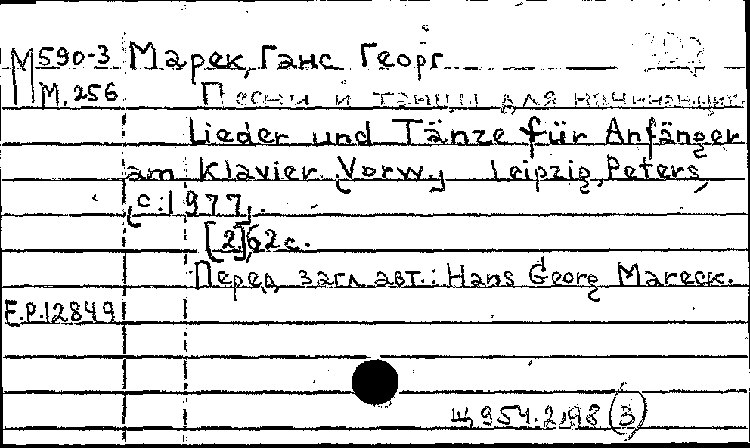 М590-3 Марек, Ганс Георг
М.256 Песни и танцы для начинающих
Lieder und Tänze für Anfänger
am Klavier [Vorw.] Leipzig, Peters,
[c.1977].
[2]62 с.
Перед загл. авт.: Hans Georg Mareck.
E.P.12849
ц 954.2,98 (3)